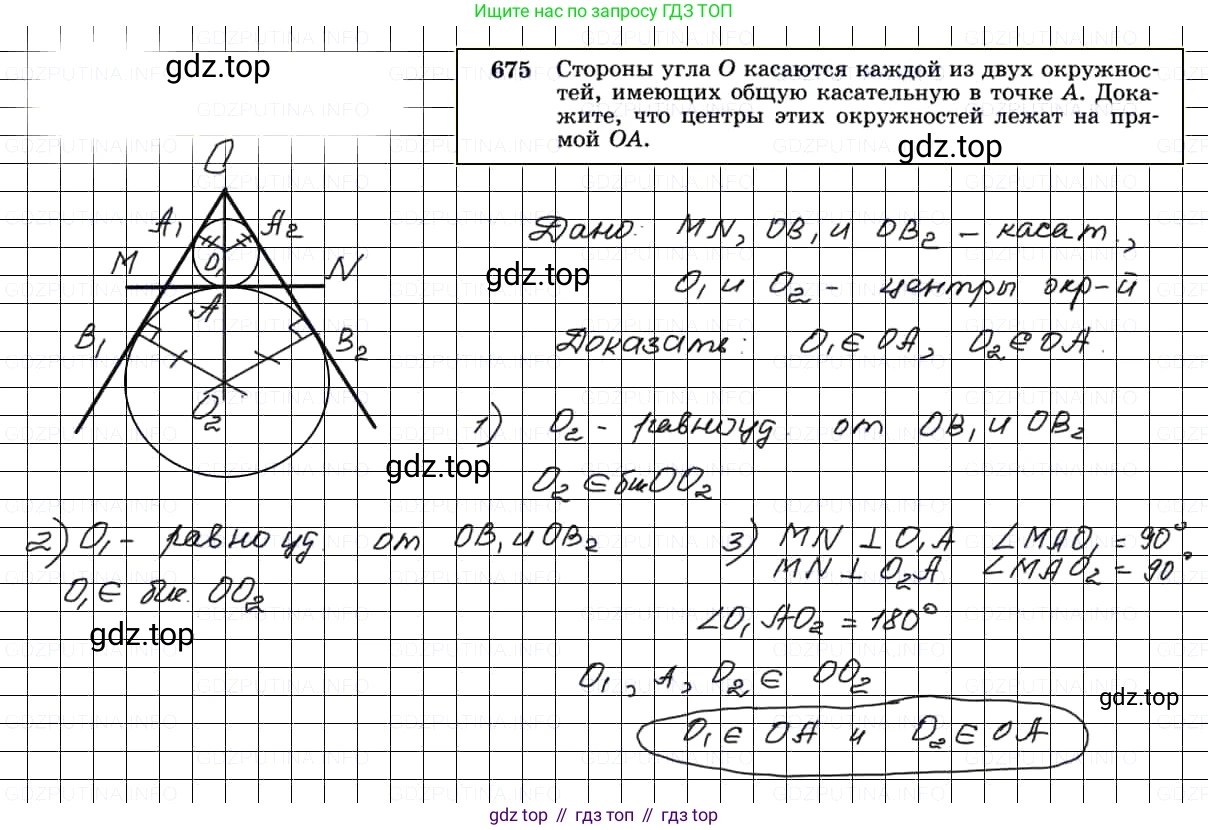 Ищите нас по запросу ГДЗ ТОП
gdz.top
675 Стороны угла O касаются каждой из двух окружнос-
тей, имеющих общую касательную в точке A. Дока-
жите, что центры этих окружностей лежат на пря-
мой OA.
gdz.top
O
A₁ A₂
M O₁ N
A
B₁ B₂
O₂
Дано: MN, OB₁ и OB₂ – касат.,
gdz.top
O₁ и O₂ – центры окр-й
Доказать: O₁ ∈ OA, O₂ ∈ OA.
1) O₂ – равноуд. от OB₁ и OB₂
gdz.top
O₂ ∈ бис. OO₂
2) O₁ – равноуд. от OB₁ и OB₂
O₁ ∈ бис. OO₂
gdz.top
3) MN ⊥ O₁A ∠MAO₁ = 90°
MN ⊥ O₂A ∠MAO₂ = 90°
∠O₁AO₂ = 180°
O₁, A, O₂ ∈ OO₂
gdz.top
O₁ ∈ OA и O₂ ∈ OA
gdz.top // гдз топ // gdz top
GDZPUTINA.INFO